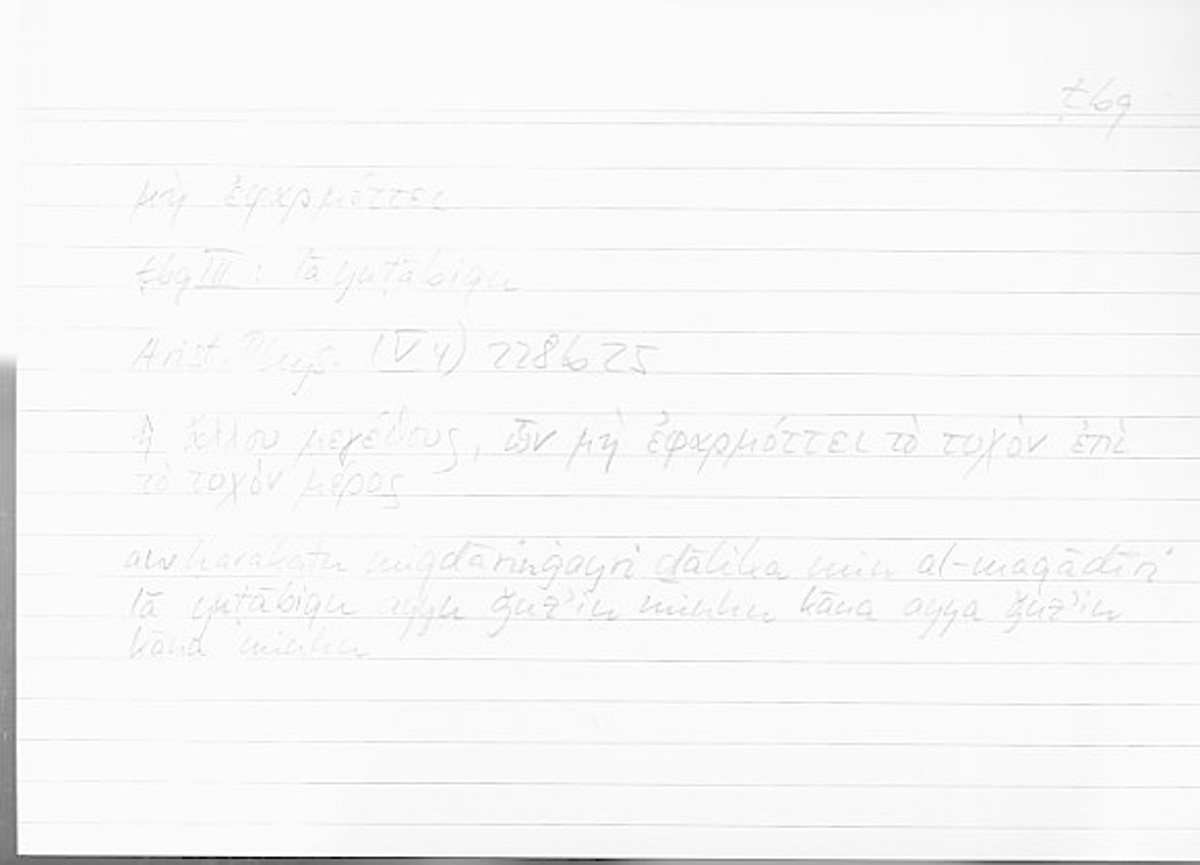 ṭbq
μὴ ἐφαρμόττει
ṭbq III : lā yuṭābiqu
Arist. Phys. (V 4) 228b25
ἢ ἄλλου μεγέθους, ὧν μὴ ἐφαρμόττει τὸ τυχὸν ἐπὶ
τὸ τυχὸν μέρος
aw ḥarakatu miqdārin ġayri ḏālika min al-maqādīri
lā yuṭābiqu ayyu ǧuzʾin minhu kāna ayya ǧuzʾin
kāna minhu